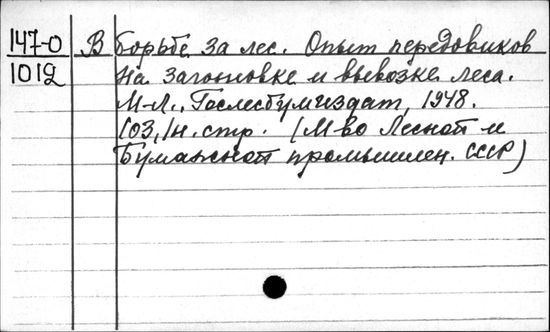 147-0 В борьбе за лес. Опыт передовиков
1012 на заготовке и вывозке леса.
М-Л., Гослесбумиздат, 1948.
103, 1 н. стр. (М-во Лесной и
Бумажной промышлен. СССР)